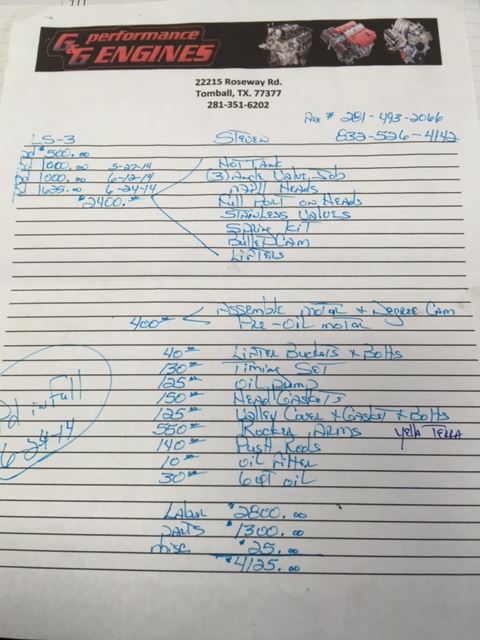 G&G performance ENGINES
22215 Roseway Rd.
Tomball, TX. 77377
281-351-6202
Fax # 281-493-2066
LS-3 Steven 832-526-4142
Pd $500.00
Pd 1000.00 5-22-14 Hot Tank
Pd 1000.00 6-12-14 (3) Angle Valve Job
Pd 1625.00 6-24-14 Mill Heads
$2400.00 Full Port on Heads
Stainless Valves
Spring Kit
Bullet Cam
Lifters
Assemble motor & Degree Cam
400.00 Pre-Oil motor
40.00 Lifter Buckets & Bolts
130.00 Timing Set
125.00 Oil Pump
150.00 Head Gaskets
125.00 Valley Cover & Gasket & Bolts
550.00 Rocker Arms Yella Terra
140.00 Push Rods
10.00 Oil Filter
30.00 6 QT oil
Pd in full
6-24-14
Labor $2800.00
parts $1300.00
misc $25.00
$4125.00